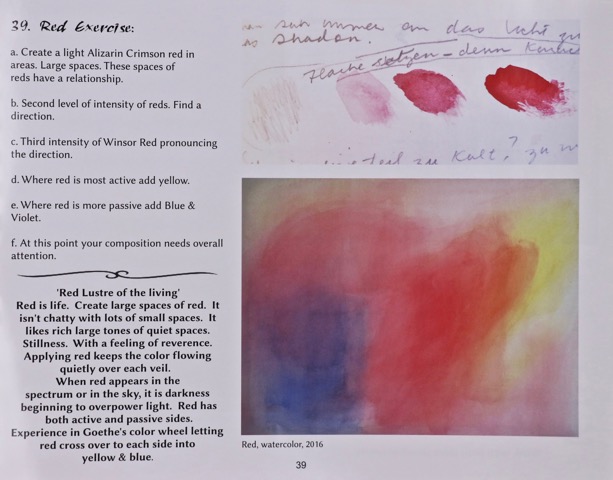 39. Red Exercise:
a. Create a light Alizarin Crimson red in
areas. Large spaces. These spaces of
reds have a relationship.
b. Second level of intensity of reds. Find a
direction.
c. Third intensity of Winsor Red pronouncing
the direction.
d. Where red is most active add yellow.
e. Where red is more passive add Blue &
Violet.
f. At this point your composition needs overall
attention.
'Red Lustre of the living'
Red is life. Create large spaces of red. It
isn't chatty with lots of small spaces. It
likes rich large tones of quiet spaces.
Stillness. With a feeling of reverence.
Applying red keeps the color flowing
quietly over each veil.
When red appears in the
spectrum or in the sky, it is darkness
beginning to overpower light. Red has
both active and passive sides.
Experience in Goethe's color wheel letting
red cross over to each side into
yellow & blue.
immer an das Licht
Fläche setzen - denn
zu Kalt? zu
Red, watercolor, 2016
39